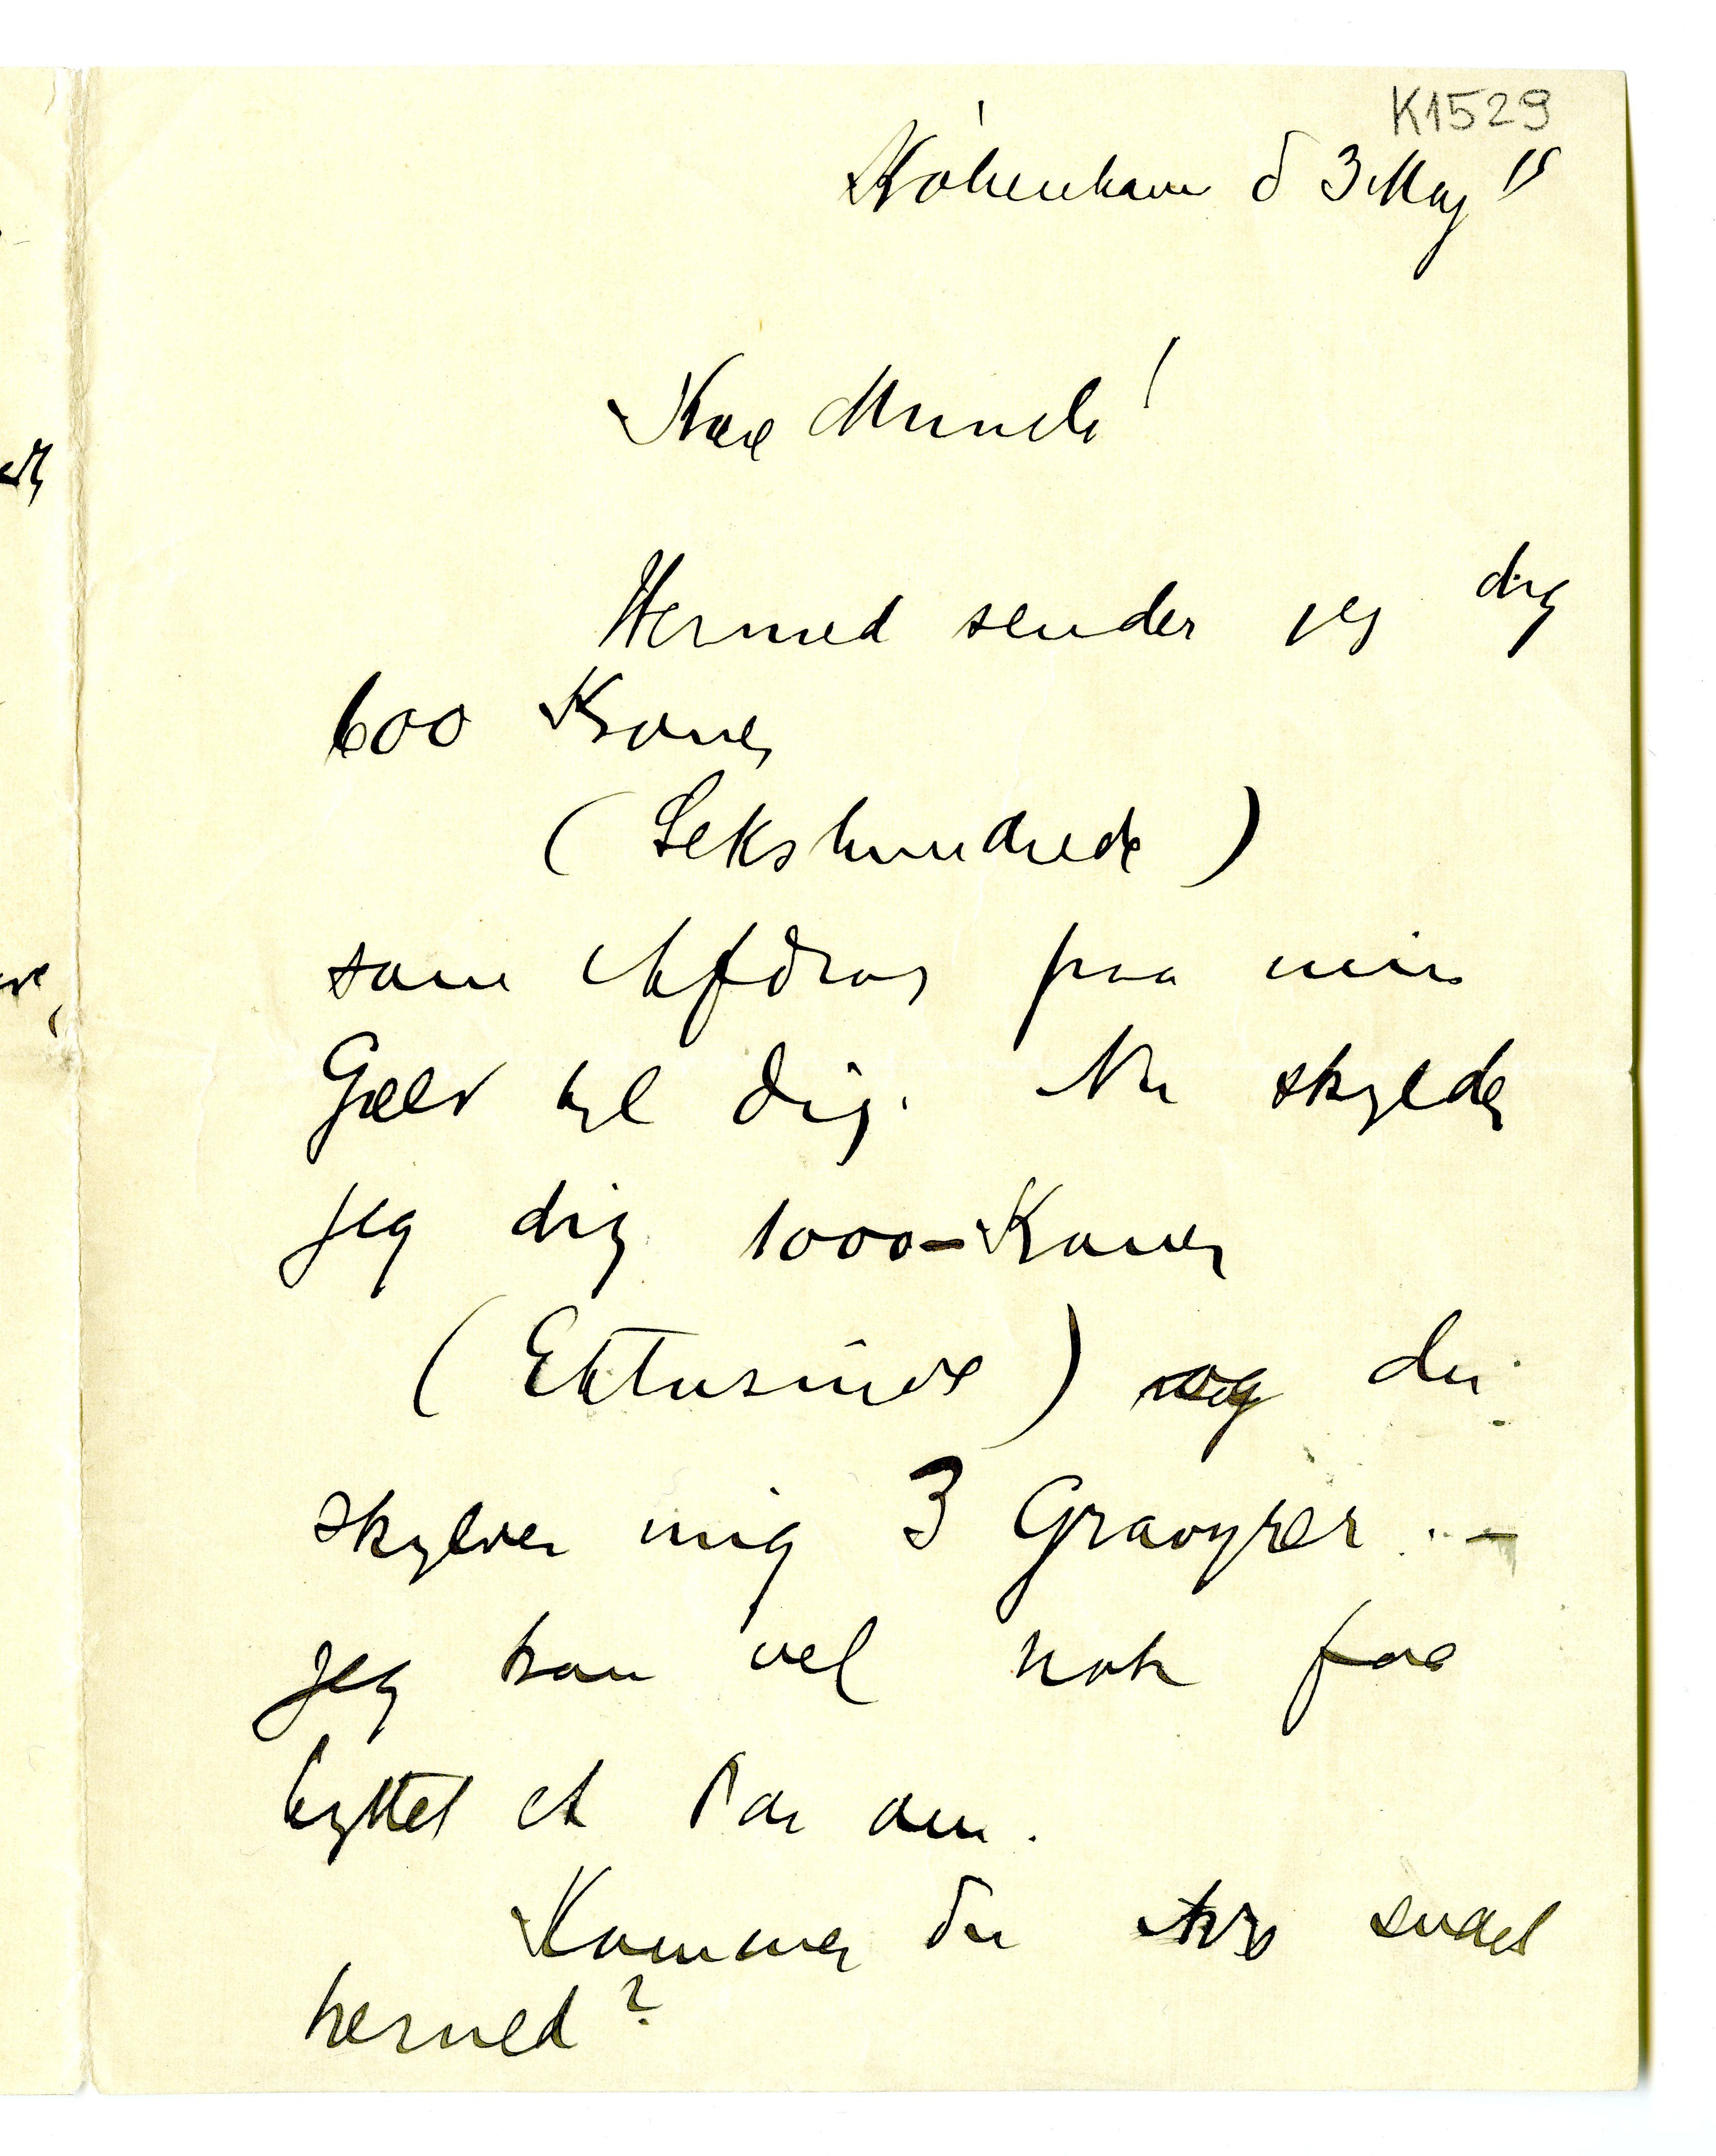 K1529
København d 3 Maj 15
Kære Munch!
Hermed sender jeg dig
600 Kroner
(Sekshundrede)
som Afdrag paa min
Gæld til dig. Nu skylder
jeg dig 1000 – Kroner
(Ettusinde) og du
skylder mig 3 Gravyrer. –
jeg kan vel nok faa
byttet et Par om.
Kommer du snart
herned?